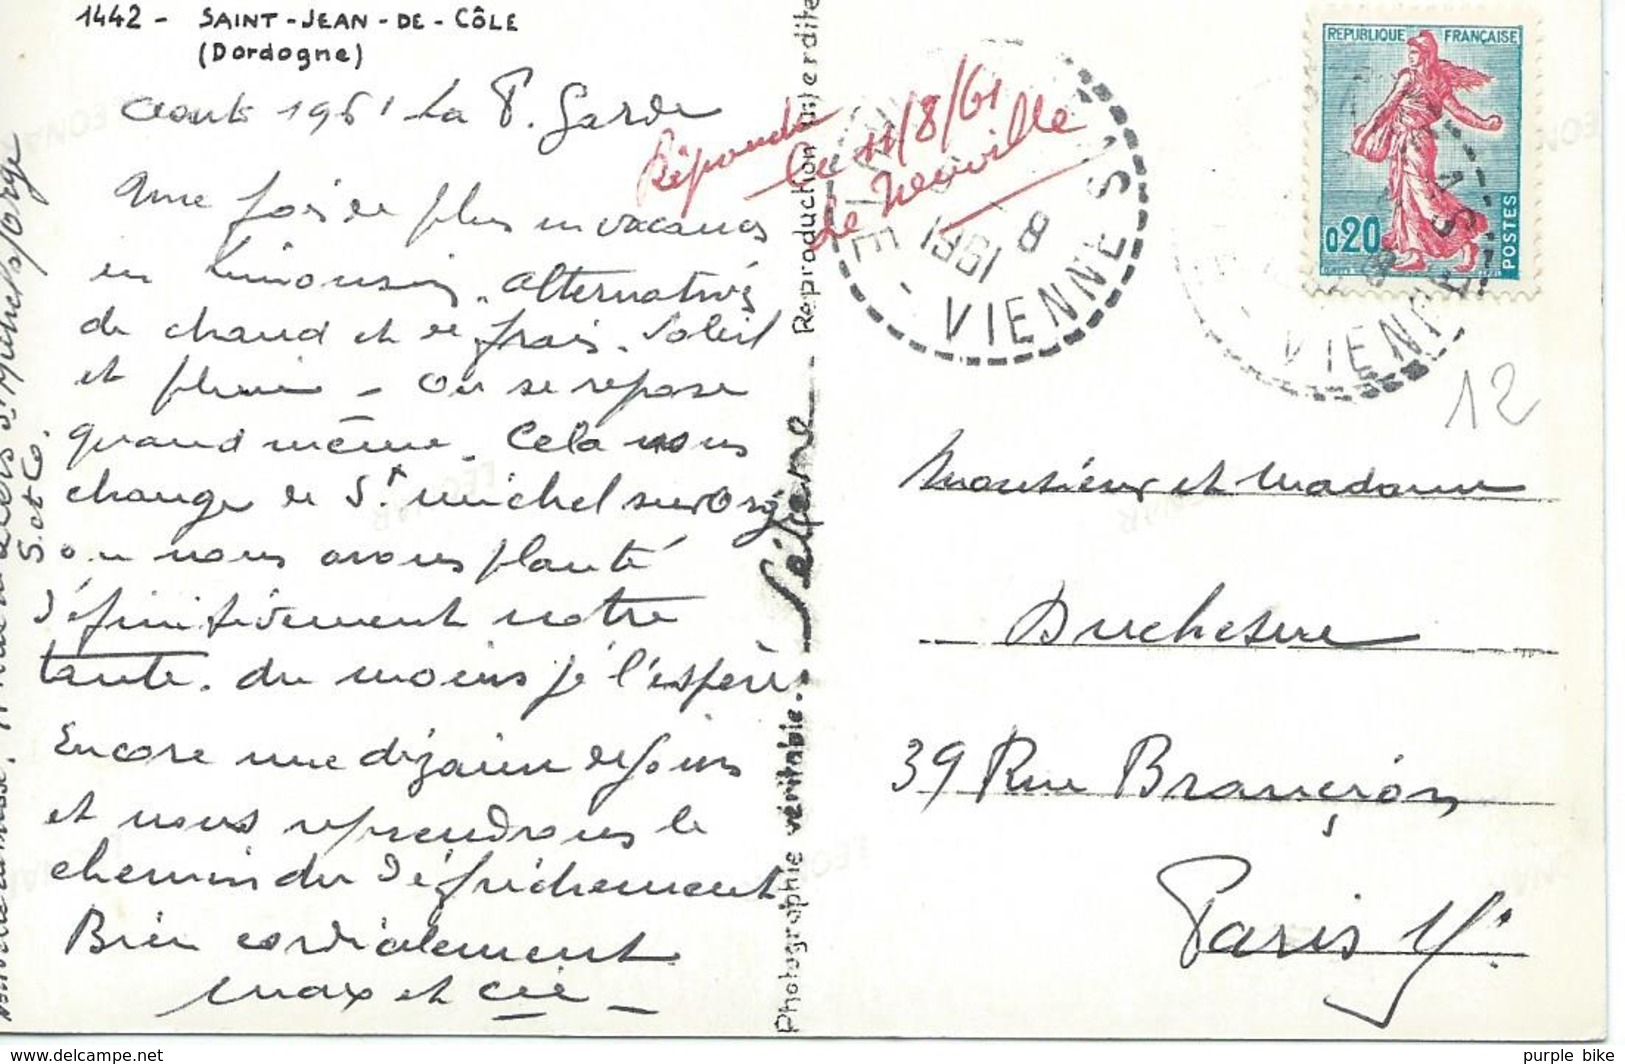 1442 - SAINT-JEAN-DE-CÔLE
(Dordogne)
Aouts 1961 La P. Garde
Une fois de plus en vacances
en Limousin. alternatives
de chaud et de frais. Soleil
et pluie - On se repose
quand même. Cela nous
change de St michel sur Orge
ou nous avons planté
définitivement notre
tante. du moins je l'espère
Encore une dizaine de jours
et nous reprendrons le
chemin du défrichement
Bien cordialement
Max et Cie
St Michel s/orge
S. et O.
Répondu
le 11/8/61
de Neuville
Photographie véritable. - Reproduction interdite
1961
8
VIENNE
VIENNE
REPUBLIQUE FRANÇAISE
0,20
POSTES
12
Monsieur et Madame
Duchesne
39 Rue Brançion
Paris
www.delcampe.net
purple bike